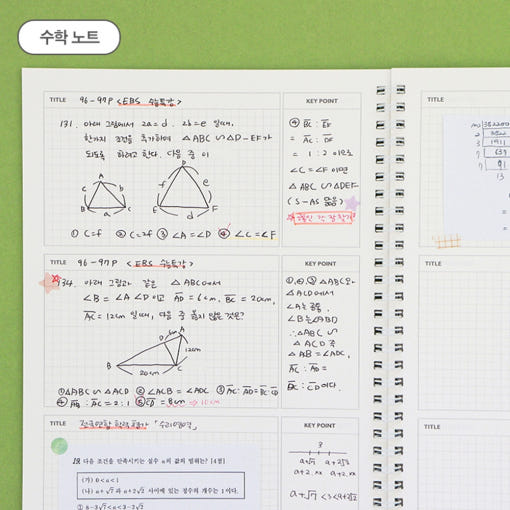 수학 노트
TITLE 96-97P <EBS 수능특강>
KEY POINT
131. 아래 그림에서 2a=d. 2b=e 일때,
한가지 조건을 추가하여 △ABC ∽ △D-EF가
되도록 하려고 한다. 다음 중 이
A
c b
B a C
D
f e
E d F
① C=f ② C=2f ③ ∠A=∠D ④ ∠C=∠F
④ BC : EF
= AC : DF
= 1 : 2 이므로
∠C=∠F 이면
△ABC ∽ △DEF
(S-AS 닮음)
TITLE 96-97P <EBS 수능특강>
134. 아래 그림과 같은 △ABC에서
∠B = ∠A D이고 AD=6cm, BC=20cm,
AC=12cm 일때, 다음 중 옳지 않은 것은?
D A
12cm
B 20cm C
①△ABC ∽ △ACD ② ∠ACB = ∠ADC ③ AC:AD=BC:CD
④ AB:AC=2:1 ⑤ CD=8cm → 10cm
△ABC와
△ACD에서
∠A는 공통,
∠B=∠ABD
∴△ABC ∽
△ACD
△AB=∠ADC,
AC:AD=
BC:CD이다.
TITLE 전국연합 학력평가 「수리영역」
KEY POINT
19 다음 조건을 만족시키는 실수 a의 값의 범위는? [4점]
(가) 0<a<1
(나) a+√7 과 a+2√2 사이에 있는 정수의 개수는 1이다.
① 3-3√7<a<3-2√2
3
a+√7 a+2√2
a+√7 <3<a+2√2
TITLE
1911
639
91
13
TITLE
TITLE